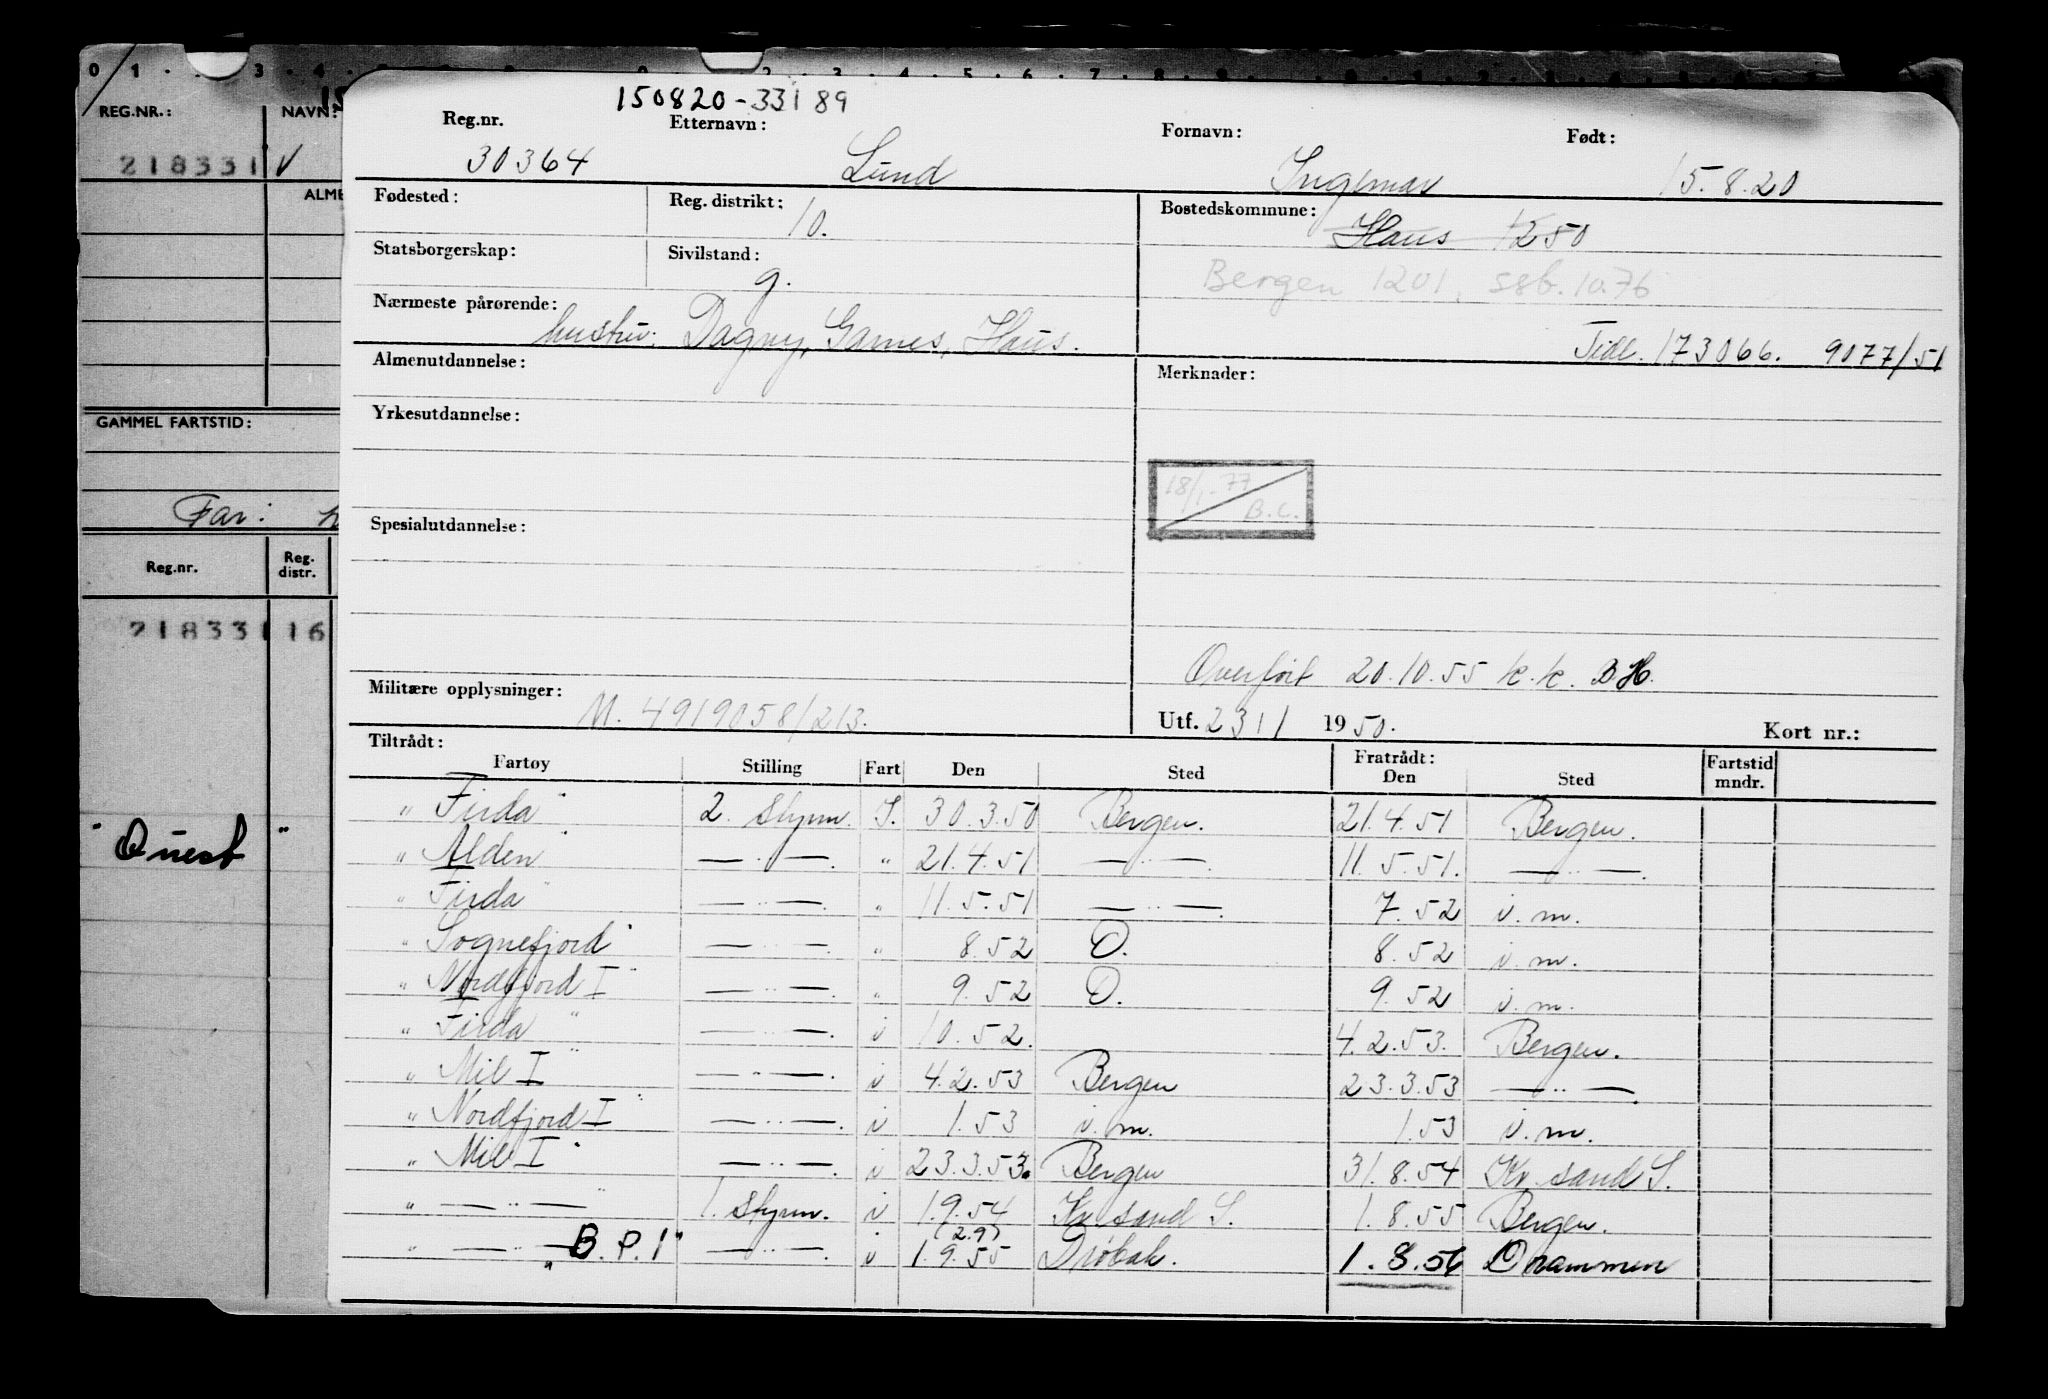 0 1 . . 3 . 4 .
REG.NR.:
NAVN:
218331 V
ALME
GAMMEL FARTSTID:
Far:
Reg.nr.
Reg. distr.
218331 16
"Quest"
150820-33189
Reg.nr. Etternavn: Fornavn: Født:
30364 Lund Ingemar 15.8.20
Fødested: Reg. distrikt: 10. Bostedskommune: Haus 1250
Statsborgerskap: Sivilstand: g. Bergen 1201, ssb.10.76
Nærmeste pårørende: hustru: Dagny, Garnes, Haus.
Tidl. 173066. 9077/51
Almenutdannelse: Merknader:
Yrkesutdannelse:
18/1-77 B.C.
Spesialutdannelse:
Overført 20.10.55 k.k. BH.
Militære opplysninger: M. 4919058/213.
Utf. 23 1 / 1950. Kort nr.:
Tiltrådt: Fratrådt:
Fartøy Stilling Fart Den Sted Den Sted Fartstid mndr.
"Firda" 2. styrm. I. 30.3.50 Bergen. 21.4.51 Bergen.
"Alden" — " — . " 21.4.51 — " — . 11.5.51. — " — .
"Firda" — " — . " 11.5.51 — " — . 7.52 i.m.
"Sognefjord" — " — . " 8.52 O. 8.52 i.m.
"Nordfjord I" — " — . " 9.52 O. 9.52 i.m.
"Firda" — " — . i 10.52. 4.2.53. Bergen.
"Mil I" — " — . i 4.2.53 Bergen 23.3.53 — " — .
"Nordfjord I" — " — . i 1.53 i.m. 1.53 i.m.
"Mil I" — " — . i 23.3.53. Bergen 31.8.54 Kr. sand S.
" — " — " 1. styrm. i 1.9.54 Kr sand S. 1.8.55 Bergen.
(2.9)
" — " — "B.P.1" — " — . i 1.9.55 Drøbak. 1.8.56 Drammen